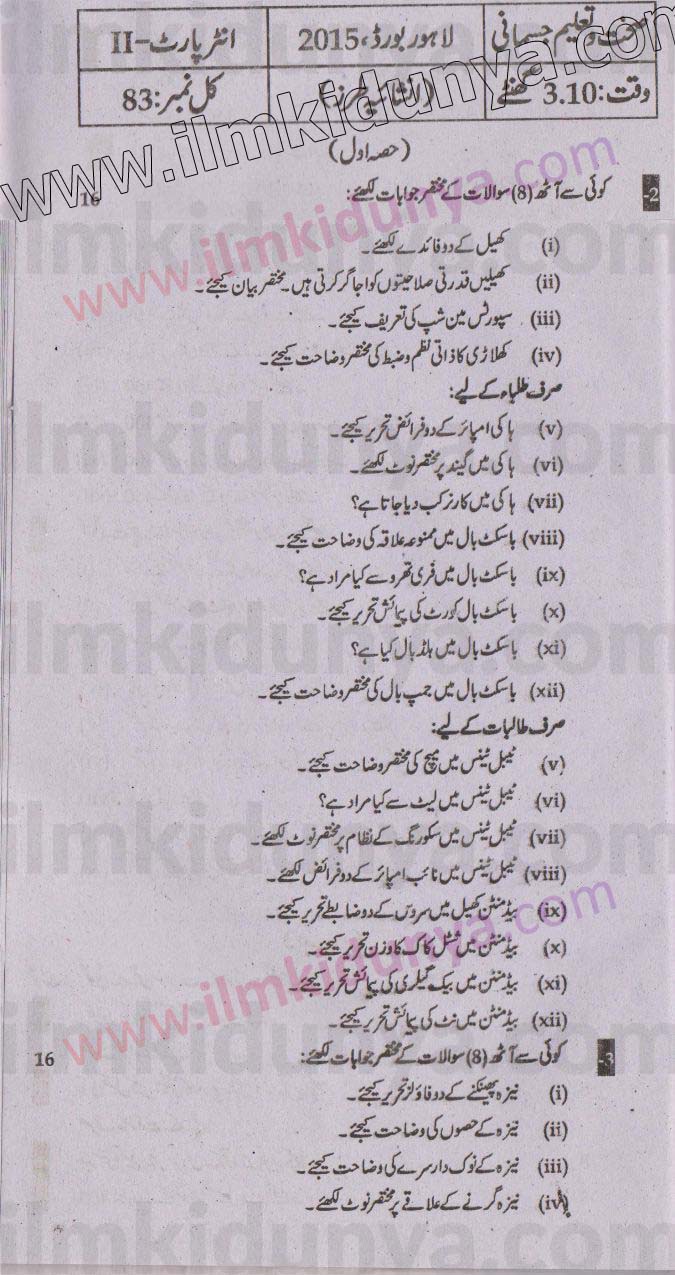 صحت و تعلیم جسمانی لاہور بورڈ، 2015 انٹر پارٹ-II
وقت: 3.10 گھنٹے (انشائیہ طرز) کل نمبر: 83
(حصہ اول)
2- کوئی سے آٹھ (8) سوالات کے مختصر جوابات لکھئے: 16
(i) کھیل کے دو فائدے لکھئے۔
(ii) کھیلیں قدرتی صلاحیتوں کو اجاگر کرتی ہیں۔ مختصر بیان کیجئے۔
(iii) سپورٹس مین شپ کی تعریف کیجئے۔
(iv) کھلاڑی کا ذاتی نظم و ضبط کی مختصر وضاحت کیجئے۔
صرف طلباء کے لیے:
(v) ہاکی امپائر کے دو فرائض تحریر کیجئے۔
(vi) ہاکی میں گیند پر مختصر نوٹ لکھئے۔
(vii) ہاکی میں کارنر کب دیا جاتا ہے؟
(viii) باسکٹ بال میں ممنوعہ علاقہ کی وضاحت کیجئے۔
(ix) باسکٹ بال میں فری تھرو سے کیا مراد ہے؟
(x) باسکٹ بال کورٹ کی پیمائش تحریر کیجئے۔
(xi) باسکٹ بال میں ہلڈ بال کیا ہے؟
(xii) باسکٹ بال میں جمپ بال کی مختصر وضاحت کیجئے۔
صرف طالبات کے لیے:
(v) ٹیبل ٹینس میں میچ کی مختصر وضاحت کیجئے۔
(vi) ٹیبل ٹینس میں لیٹ سے کیا مراد ہے؟
(vii) ٹیبل ٹینس میں سکورنگ کے نظام پر مختصر نوٹ لکھئے۔
(viii) ٹیبل ٹینس میں نائب امپائر کے دو فرائض لکھئے۔
(ix) بیڈمنٹن کھیل میں سروس کے دو ضابطے تحریر کیجئے۔
(x) بیڈمنٹن میں شٹل کاک کا وزن تحریر کیجئے۔
(xi) بیڈمنٹن میں بیک گیلری کی پیمائش تحریر کیجئے۔
(xii) بیڈمنٹن میں نٹ کی پیمائش تحریر کیجئے۔
3- کوئی سے آٹھ (8) سوالات کے مختصر جوابات لکھئے: 16
(i) نیزہ پھینکنے کے دو فاؤلز تحریر کیجئے۔
(ii) نیزہ کے حصوں کی وضاحت کیجئے۔
(iii) نیزہ کے نوک دار سرے کی وضاحت کیجئے۔
(iv) نیزہ گرنے کے علاقے پر مختصر نوٹ لکھئے۔
www.ilmkidunya.com
www.ilmkidunya.com
www.ilmkidunya.com
ilmkidunya.com
ilmkidunya.com
ilmkidunya.com
ilmkidunya.com
ilmkidunya.com
ilmkidunya.com